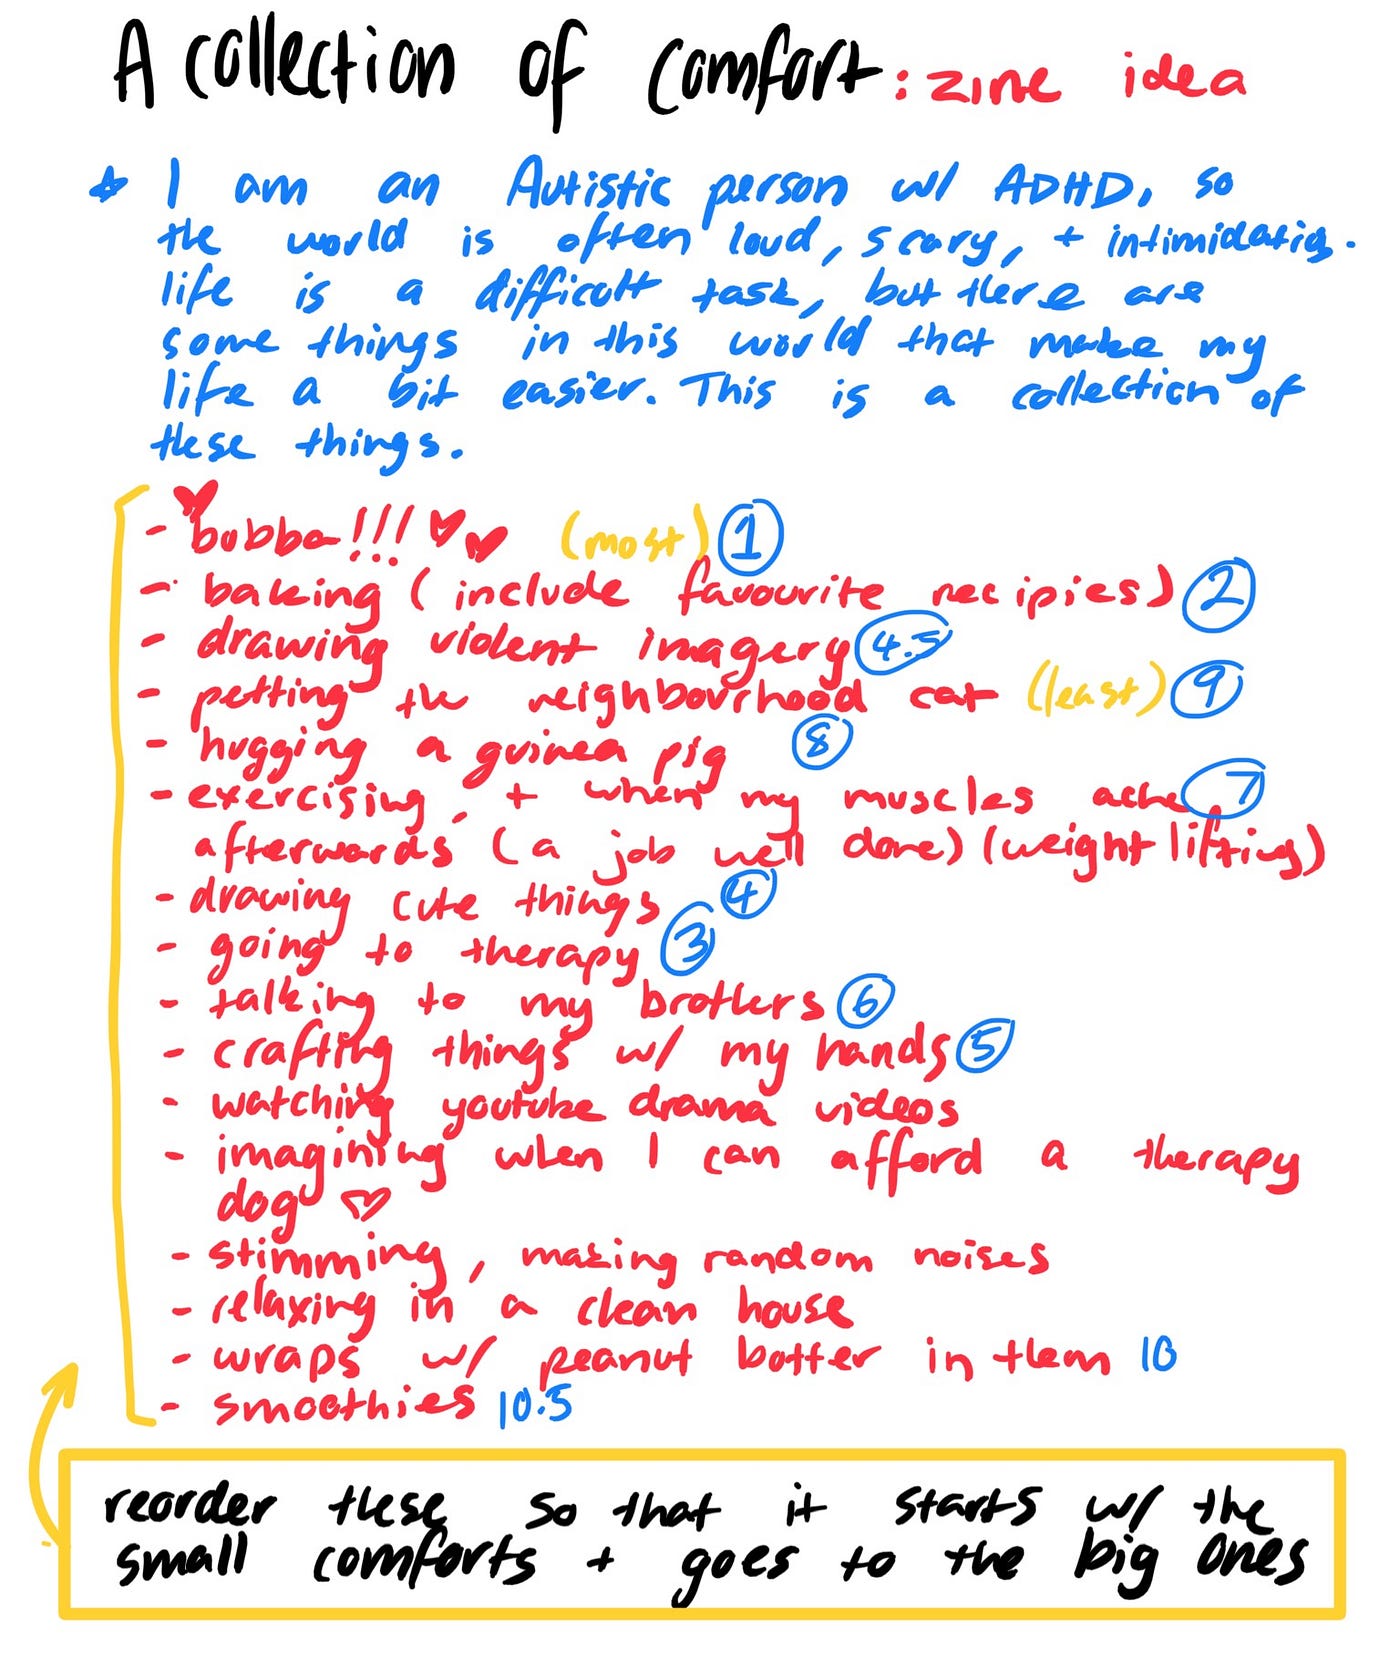 A collection of comfort: zine idea
☆ I am an Autistic person w/ ADHD, so
the world is often loud, scary, + intimidating.
life is a difficult task, but there are
some things in this world that make my
life a bit easier. This is a collection of
these things.
- bubba!!! (most) 1
- baking (include favourite recipies) 2
- drawing violent imagery 4.5
- petting the neighbourhood cat (least) 9
- hugging a guinea pig 8
- exercising, + when my muscles ache 7
afterwards (a job well done) (weight lifting)
- drawing cute things 4
- going to therapy 3
- talking to my brothers 6
- crafting things w/ my hands 5
- watching youtube drama videos
- imagining when I can afford a therapy
dog ♡
- stimming, making random noises
- relaxing in a clean house
- wraps w/ peanut butter in them 10
- smoothies 10.5
reorder these so that it starts w/ the
small comforts + goes to the big ones